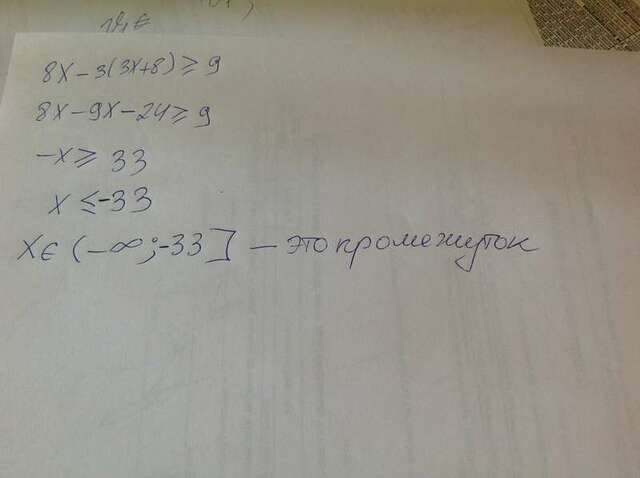 8x - 3(3x+8) ≥ 9
8x - 9x - 24 ≥ 9
-x ≥ 33
x ≤ -33
x ∈ (-∞; -33] - это промежуток